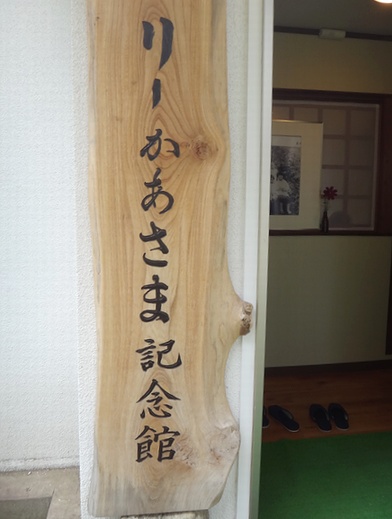 リーかあさま記念館